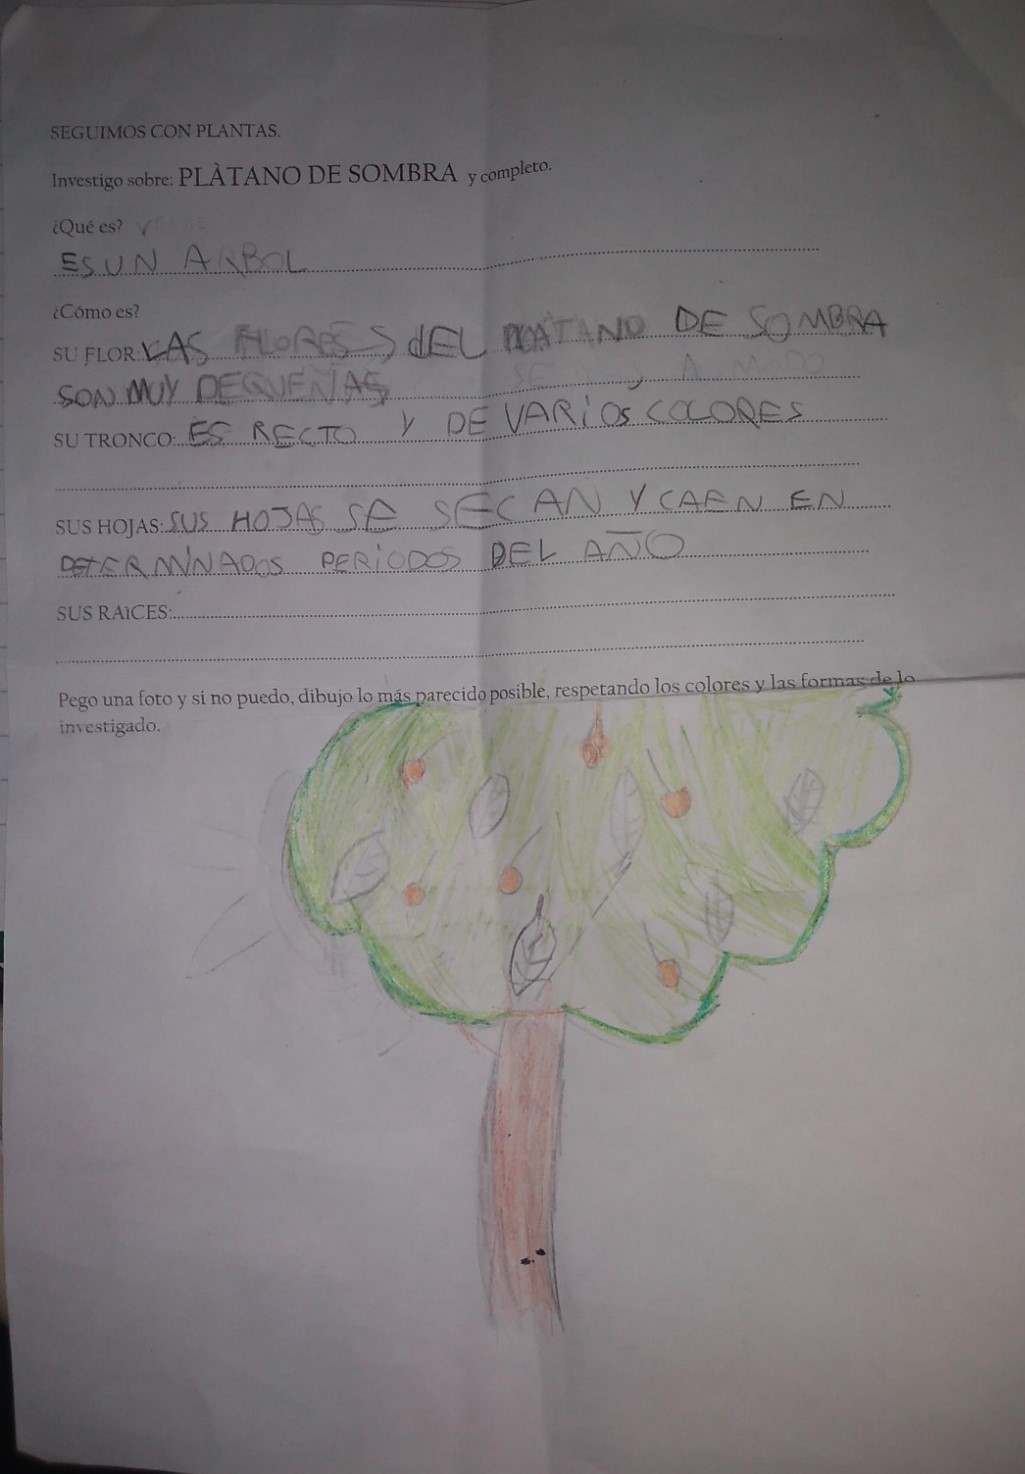 SEGUIMOS CON PLANTAS.
Investigo sobre: PLÀTANO DE SOMBRA y completo.
¿Qué es?
ES UN ARBOL
¿Cómo es?
SU FLOR: LAS FLORES dEL PLATANO DE SOMBRA
SON MUY PEQUEÑAS
SU TRONCO: ES RECTO Y DE VARiOS COLORES
SUS HOJAS: SUS HOJAS SE SECAN Y CAEN EN
DETERMiNADOS PERiODOS DEL AÑO
SUS RAìCES:
Pego una foto y si no puedo, dibujo lo más parecido posible, respetando los colores y las formas de lo
investigado.